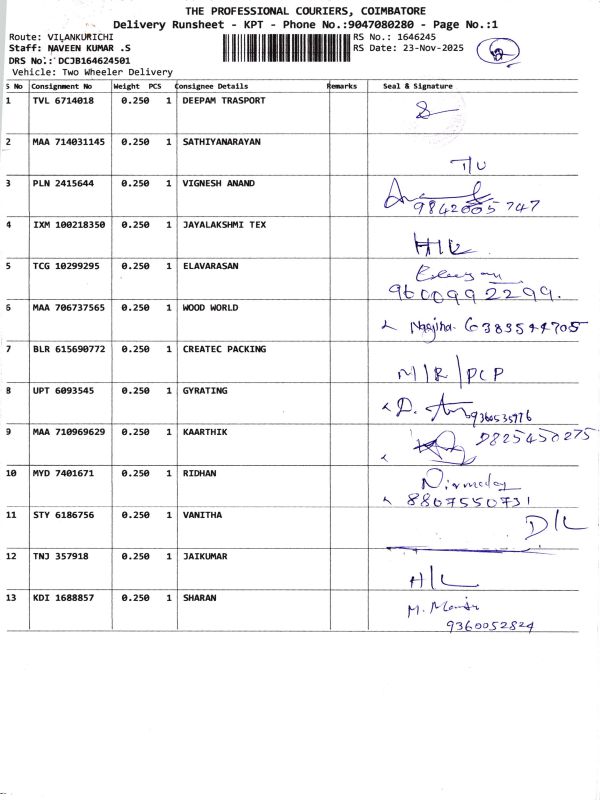 THE PROFESSIONAL COURIERS, COIMBATORE
Delivery Runsheet - KPT - Phone No.:9047080280 - Page No.:1
Route: VILANKURICHI
RS No.: 1646245
Staff: NAVEEN KUMAR .S
RS Date: 23-Nov-2025
DRS No.: DCJB164624501
Vehicle: Two Wheeler Delivery
S No Consignment No Weight PCS Consignee Details Remarks Seal & Signature
1 TVL 6714018 0.250 1 DEEPAM TRASPORT
2 MAA 714031145 0.250 1 SATHIYANARAYAN
T/U
3 PLN 2415644 0.250 1 VIGNESH ANAND
9842005747
4 IXM 100218350 0.250 1 JAYALAKSHMI TEX
H/L
5 TCG 10299295 0.250 1 ELAVARASAN
9600992299.
6 MAA 706737565 0.250 1 WOOD WORLD
6383544705
7 BLR 615690772 0.250 1 CREATEC PACKING
M/R/PCP
8 UPT 6093545 0.250 1 GYRATING
9360535976
9 MAA 710969629 0.250 1 KAARTHIK
9825450275
10 MYD 7401671 0.250 1 RIDHAN
8807550731
11 STY 6186756 0.250 1 VANITHA
D/L
12 TNJ 357918 0.250 1 JAIKUMAR
H/L
13 KDI 1688857 0.250 1 SHARAN
9360052824